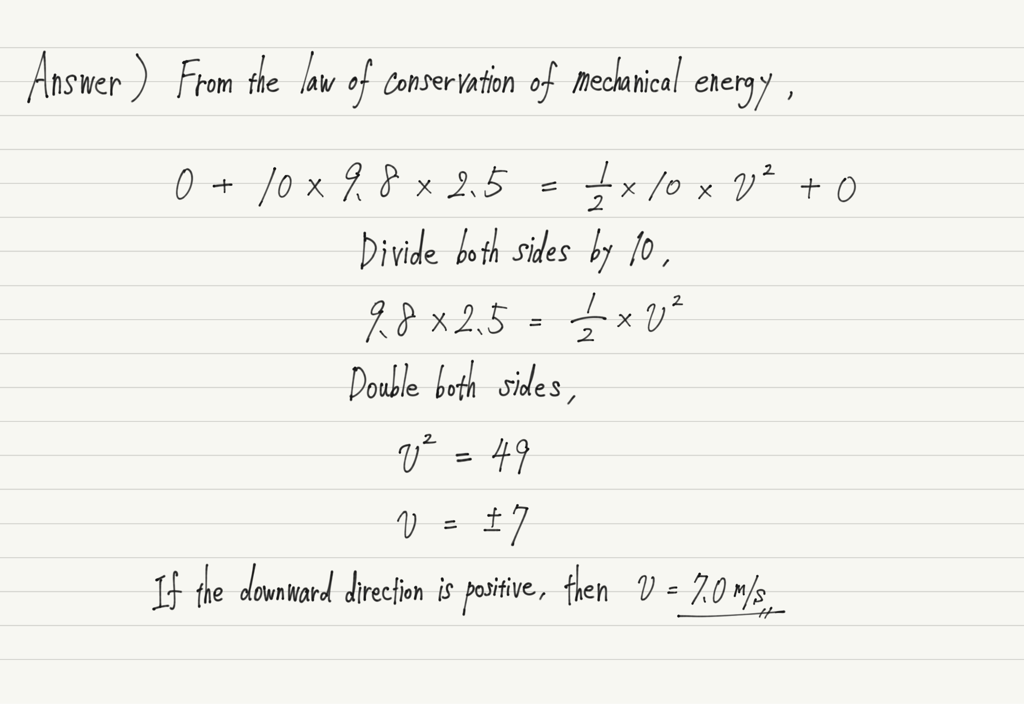 Answer) From the law of conservation of mechanical energy,
0 + 10 × 9.8 × 2.5 = 1/2 × 10 × v² + 0
Divide both sides by 10,
9.8 × 2.5 = 1/2 × v²
Double both sides,
v² = 49
v = ±7
If the downward direction is positive, then v = 7.0 m/s